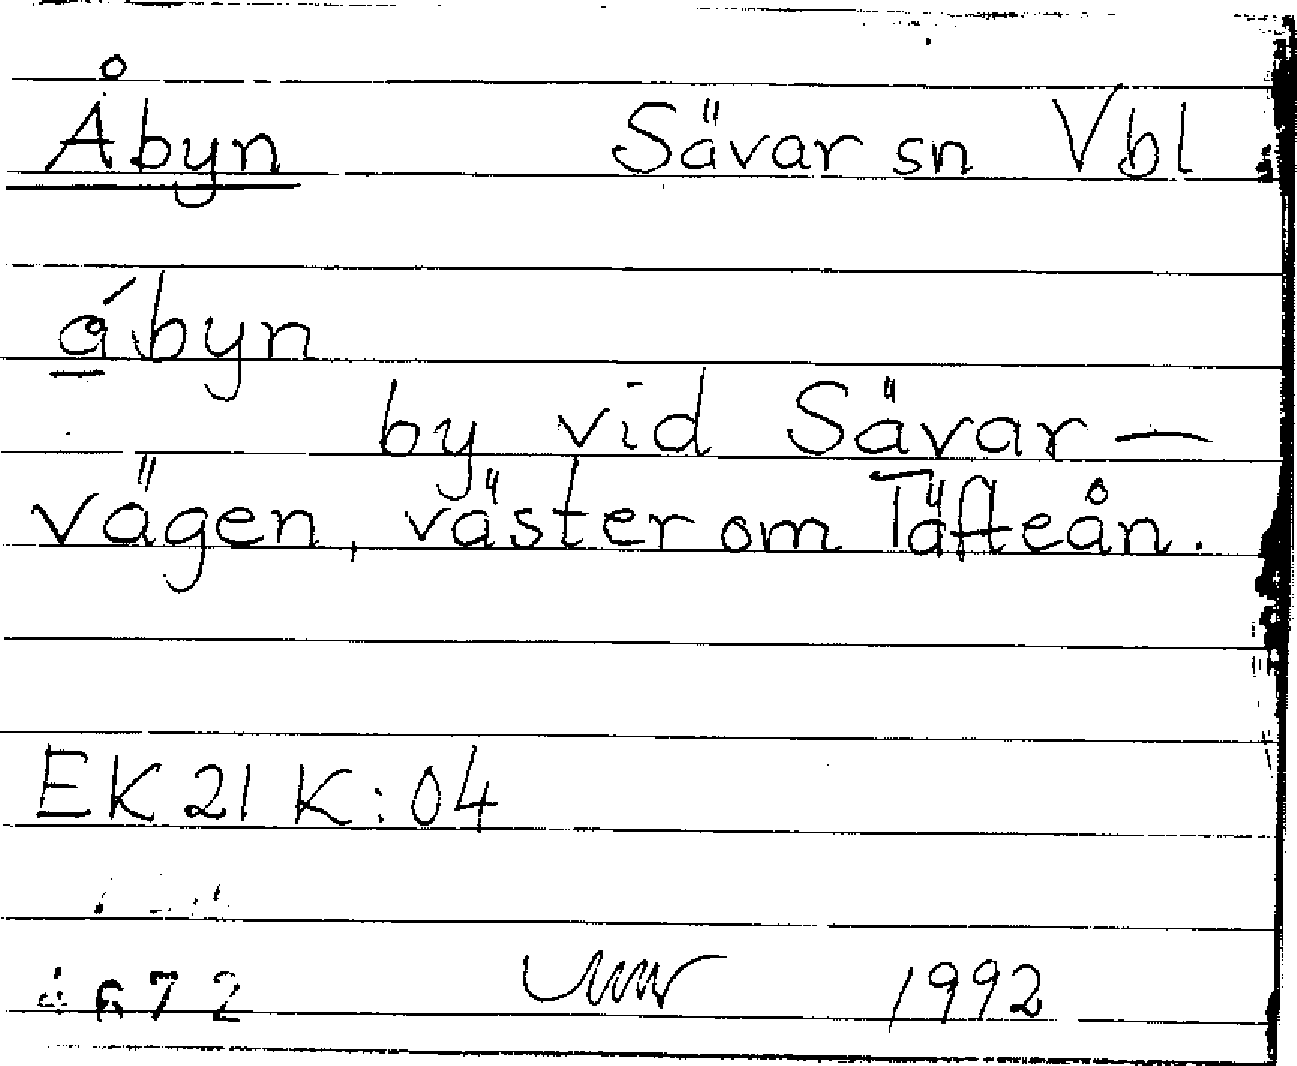 Åbyn Sävar sn Vbl
ǻbyn
by vid Sävar-
vägen, väster om Täfteån.
EK 21 K:04
1992